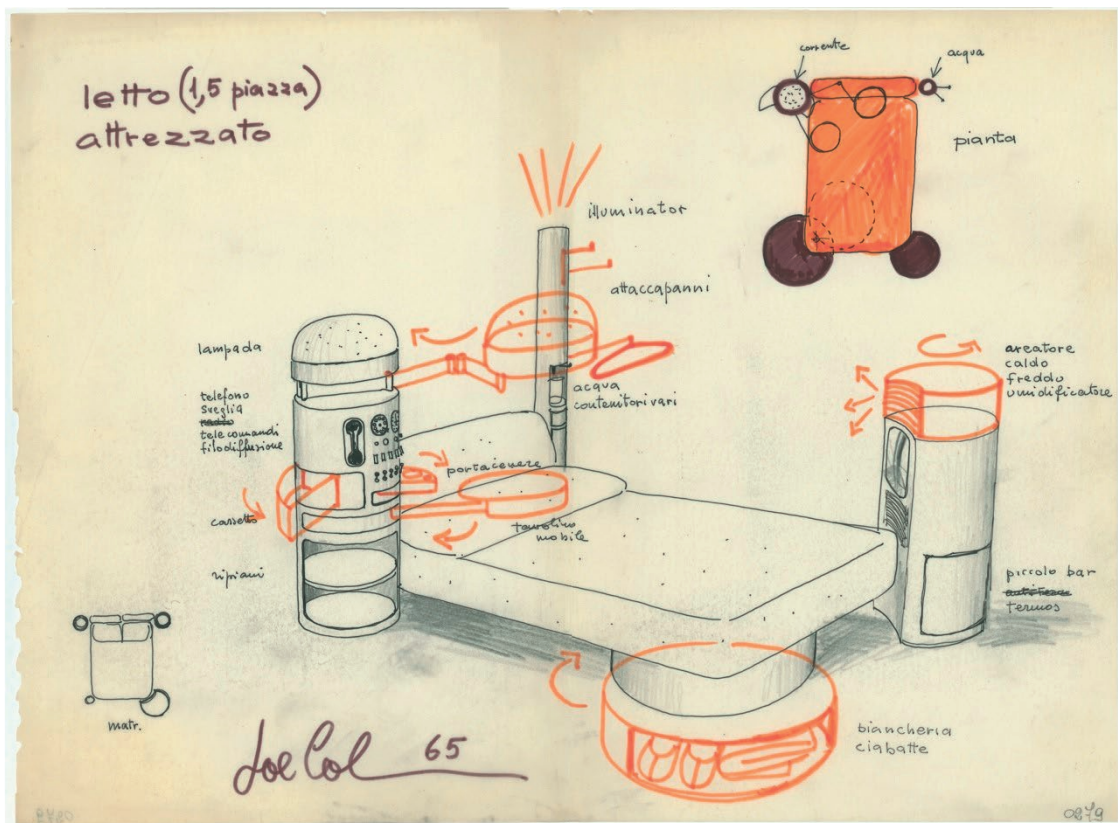 letto (1,5 piazza)
attrezzato
corrente
acqua
pianta
illuminator
attaccapanni
lampada
telefono
sveglia
telecomandi
filodiffusione
acqua
contenitori vari
areatore
caldo
freddo
umidificatore
portacenere
cassetto
tavolino
mobile
ripiani
piccolo bar
termos
matr.
biancheria
ciabatte
Joe Col 65
0879